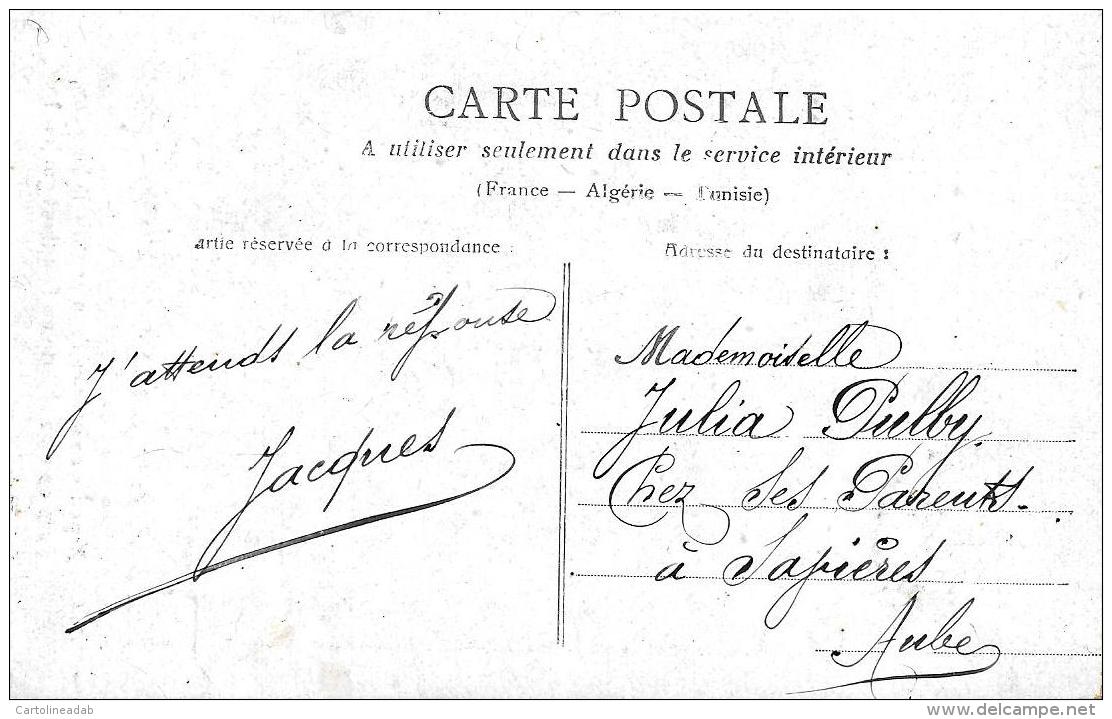 CARTE POSTALE
A utiliser seulement dans le service intérieur
(France — Algérie — Tunisie)
artie réservée à la correspondance :
Adresse du destinataire :
J'attends la réponse
Jacques
Mademoiselle
Julia Pulby.
Chez Ses Parents.
à
Aube
Cartolineadab
delcampe.net